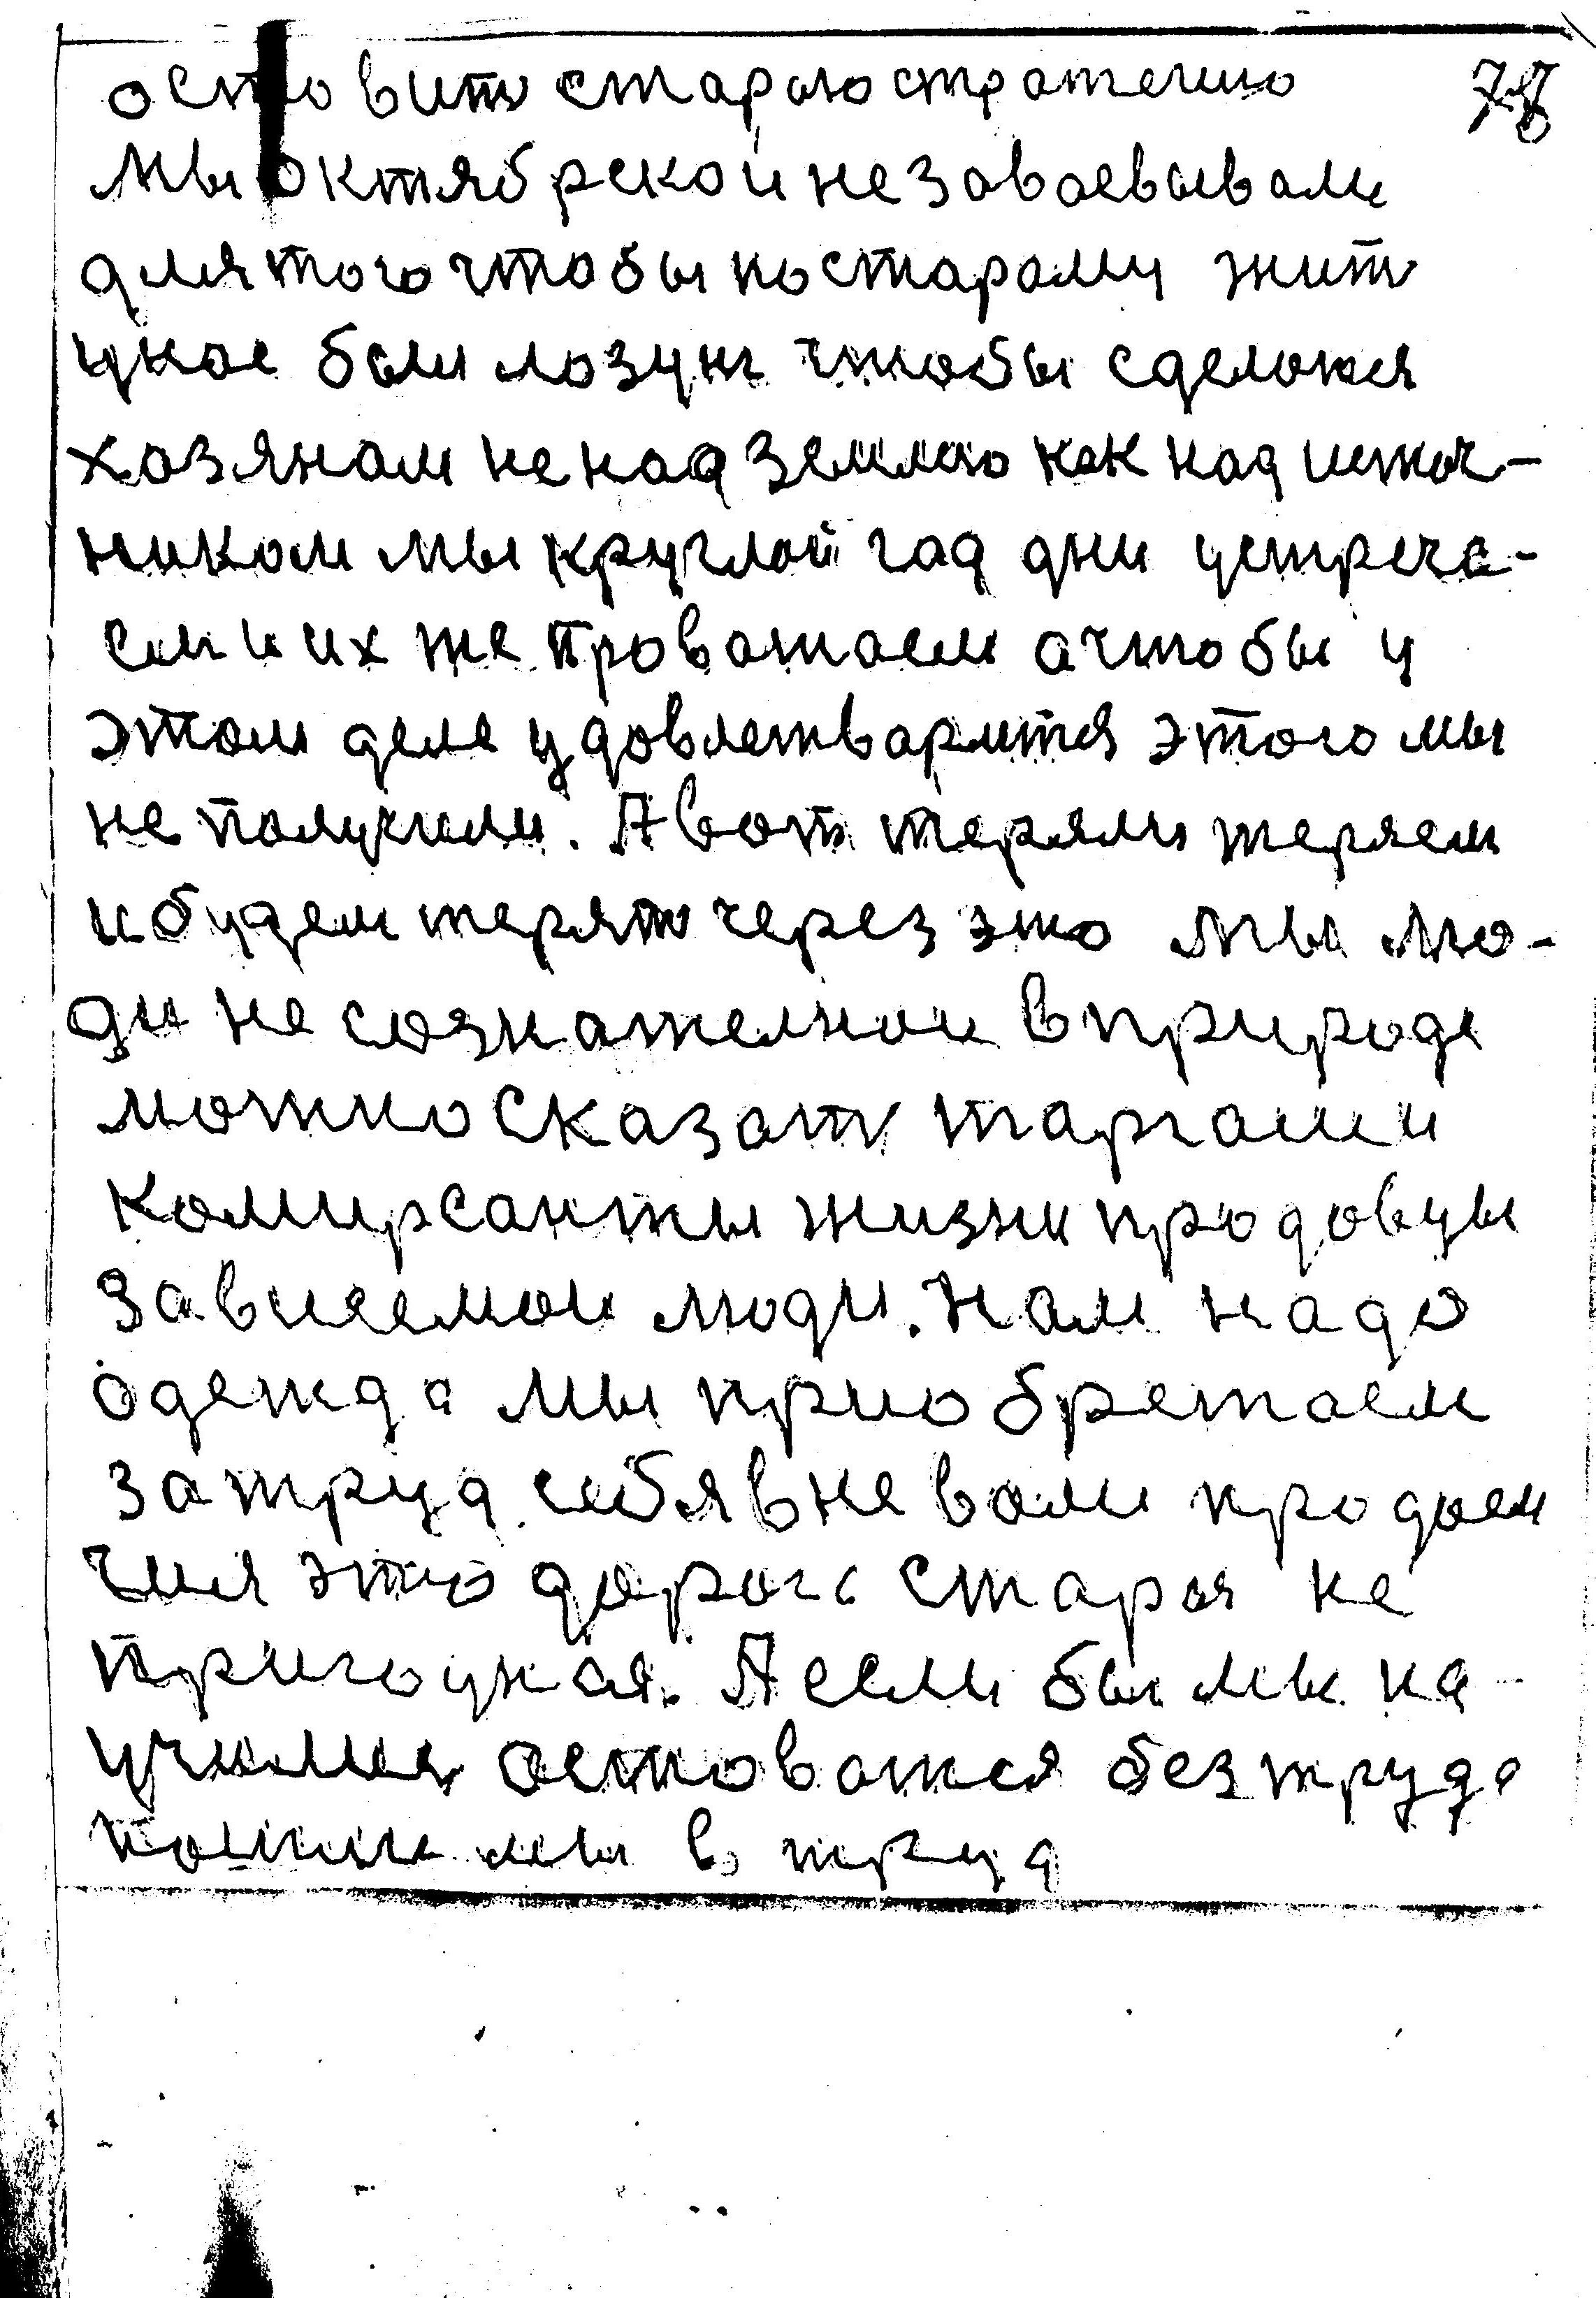 оставить старою стратегию 78
мы октябрской не завоевывали
для того чтобы по старому жить
унас был лозунг чтобы сделатся
хозяном не над землею как над источ-
ником мы круглой год дни устреча-
ем и их же провожаем а чтобы у
этом деле удовлетварится этого мы
не получили. А вот теряли теряем
и будем терять через это мы лю-
ди не сознателнои в природе
можно сказать таргаши
комирсанты жизни продовцы
зависемои люди. Нам надо
одежда мы приобретаем
за труд. себя в неволи продаем
чия это дорога старая не
пригоуная. А если бы мы на-
училися оставатся без труда
пошли мы в труд